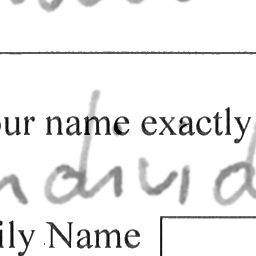 our name exactly
individ
ily Name